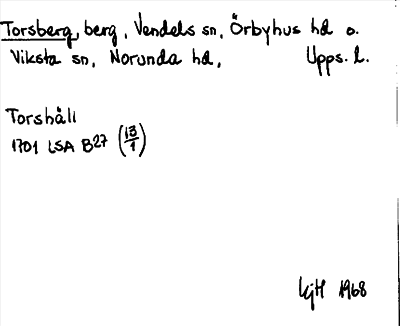 Torsberg, berg, Vendels sn, Örbyhus hd o.
Viksta sn, Norunda hd, Upps. l.
Torshäll
1701 LSA B27 (13/1)
KjH 1968